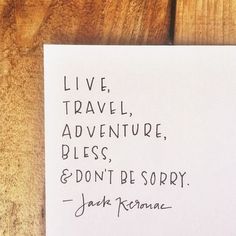 LIVE,
TRAVEL,
ADVENTURE,
BLESS,
& DON'T BE SORRY.
— Jack Kerouac